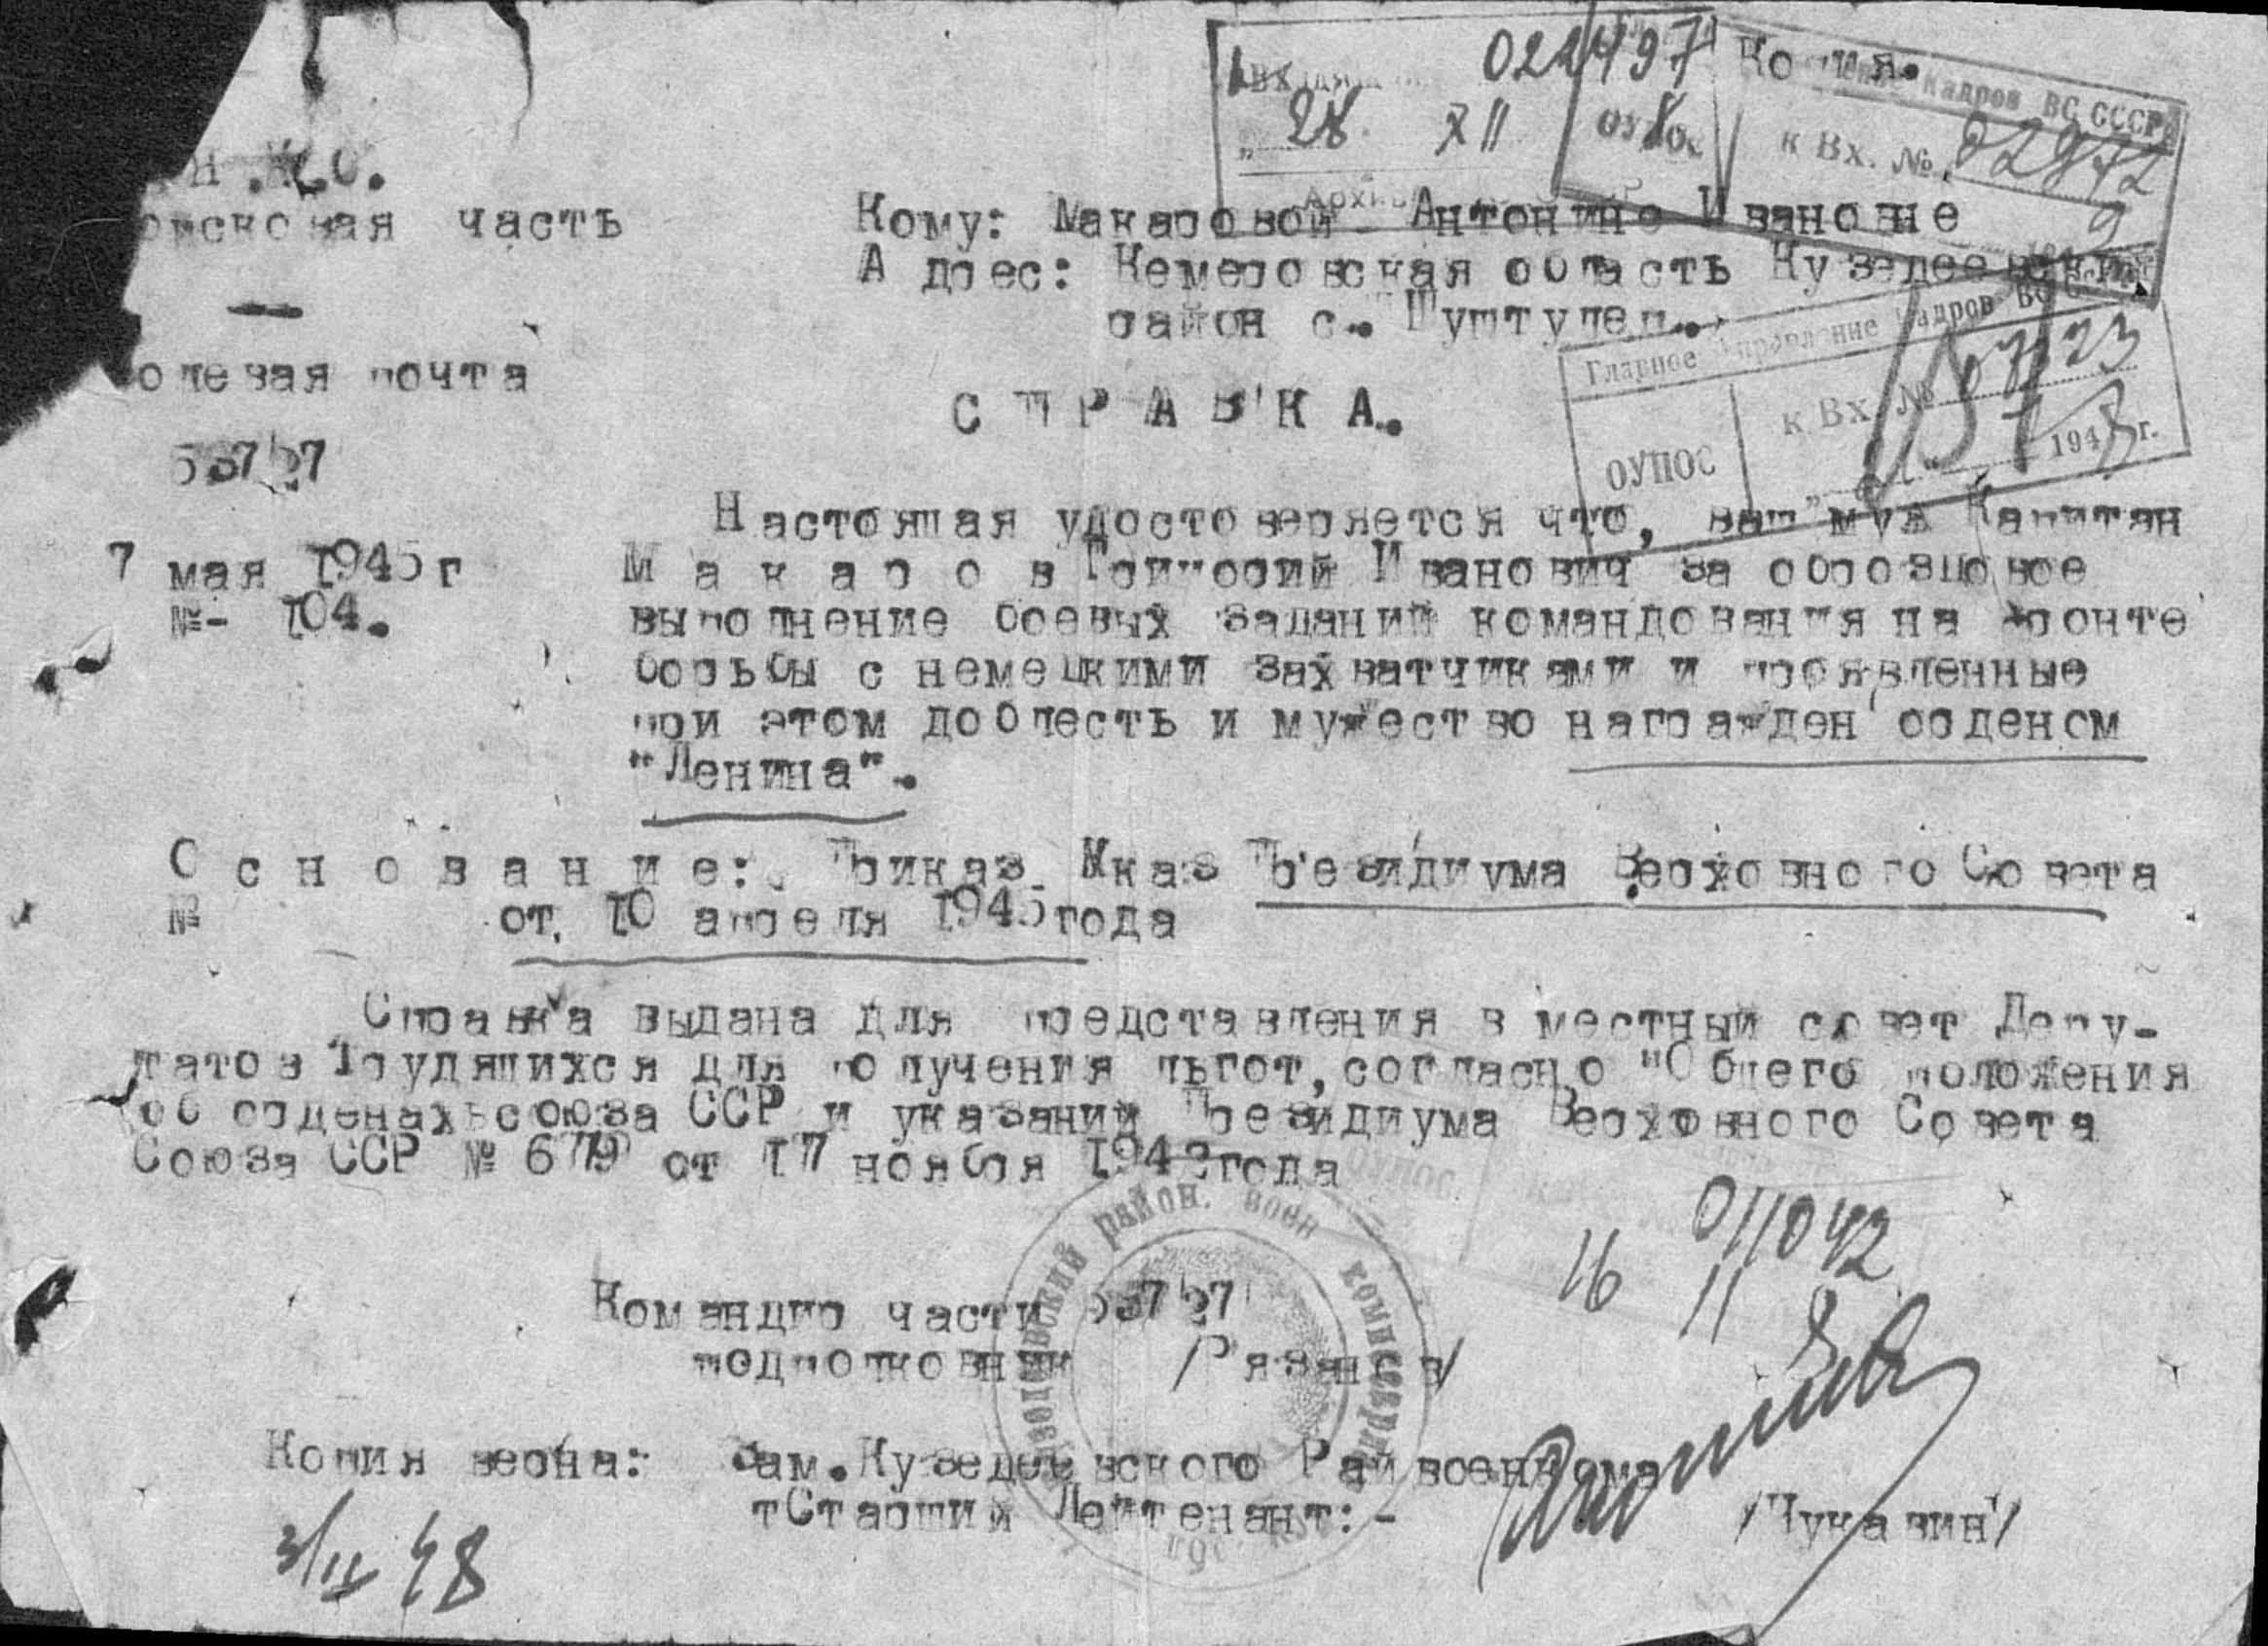 022497
Копия.
Входящ
28. XII
ОУПОС
Кадров ВС СССР
к Вх. № 02972
Н.К.О.
часть
Кому: Макаровой Антонине Ивановне
Адрес: Кемеровская область Кузедеевский
район с. Шуштулеп.
олевая почта
Главное Управление Кадров ВС
к Вх. №
ОУПОС
194 г.
С П Р А В К А.
53727
Настоящая удостоверяется что, ваш муж Капитан
7 мая 1945 г
М а к а р о в Григорий Иванович за образцовое
№- 104.
выполнение боевых заданий командования на фронте
борьбы с немецкими захватчиками и проявленные
при этом доблесть и мужество награжден орденом
"Ленина".
О с н о в а н и е: Приказ Указ Президиума Верховного Совета
№ от 10 апреля 1945 года
Справка выдана для представления в местный совет Депу-
татов Трудящихся для получения льгот, согласно "Общего положения
об орденах союза ССР и указаний Президиума Верховного Совета
Союза ССР № 679 от 17 ноября 1942 года
011042
16 11
район. воен комиссариат
Командир части 53727
подполковник /Рязанов/
Копия верна: Зам. Кузедеевского Райвоенкома
тСтарший Лейтенант:-
/Чукавин/
3/II 48